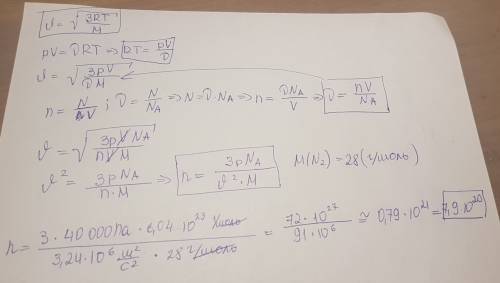 υ = √(3RT/M)
pV = νRT ⇒ RT = pV/ν
υ = √(3pV/νM)
n = N/V ; ν = N/N_A ⇒ N = ν·N_A ⇒ n = νN_A/V ⇒ ν = nV/N_A
υ = √(3pVN_A/nVM)
υ² = 3pN_A/n·M ⇒ n = 3pN_A/υ²·M   M(N₂) = 28 (г/моль)
n = 3·40000Па·6,04·10²³ 1/моль / 3,24·10⁶ м²/с² · 28 г/моль = 72·10²⁷/91·10⁶ ≃ 0,79·10²¹ = 7,9·10²⁰